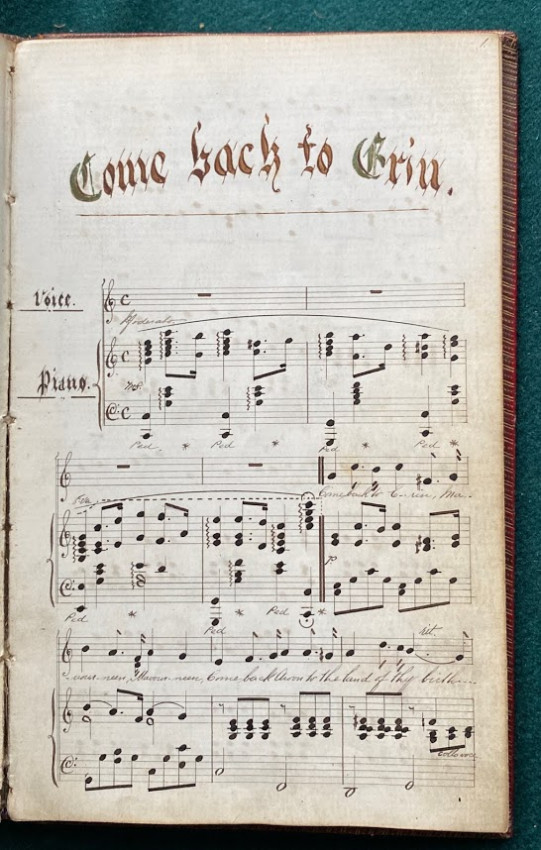 Come back to Erin.
Voice.
Moderato
Piano.
Ped * Ped * Ped * Ped *
Come back to E-rin, Ma-
p
Ped * Ped * Ped *
rit.
vour-neen, Mavour-neen, Come back Aroon to the land of thy birth